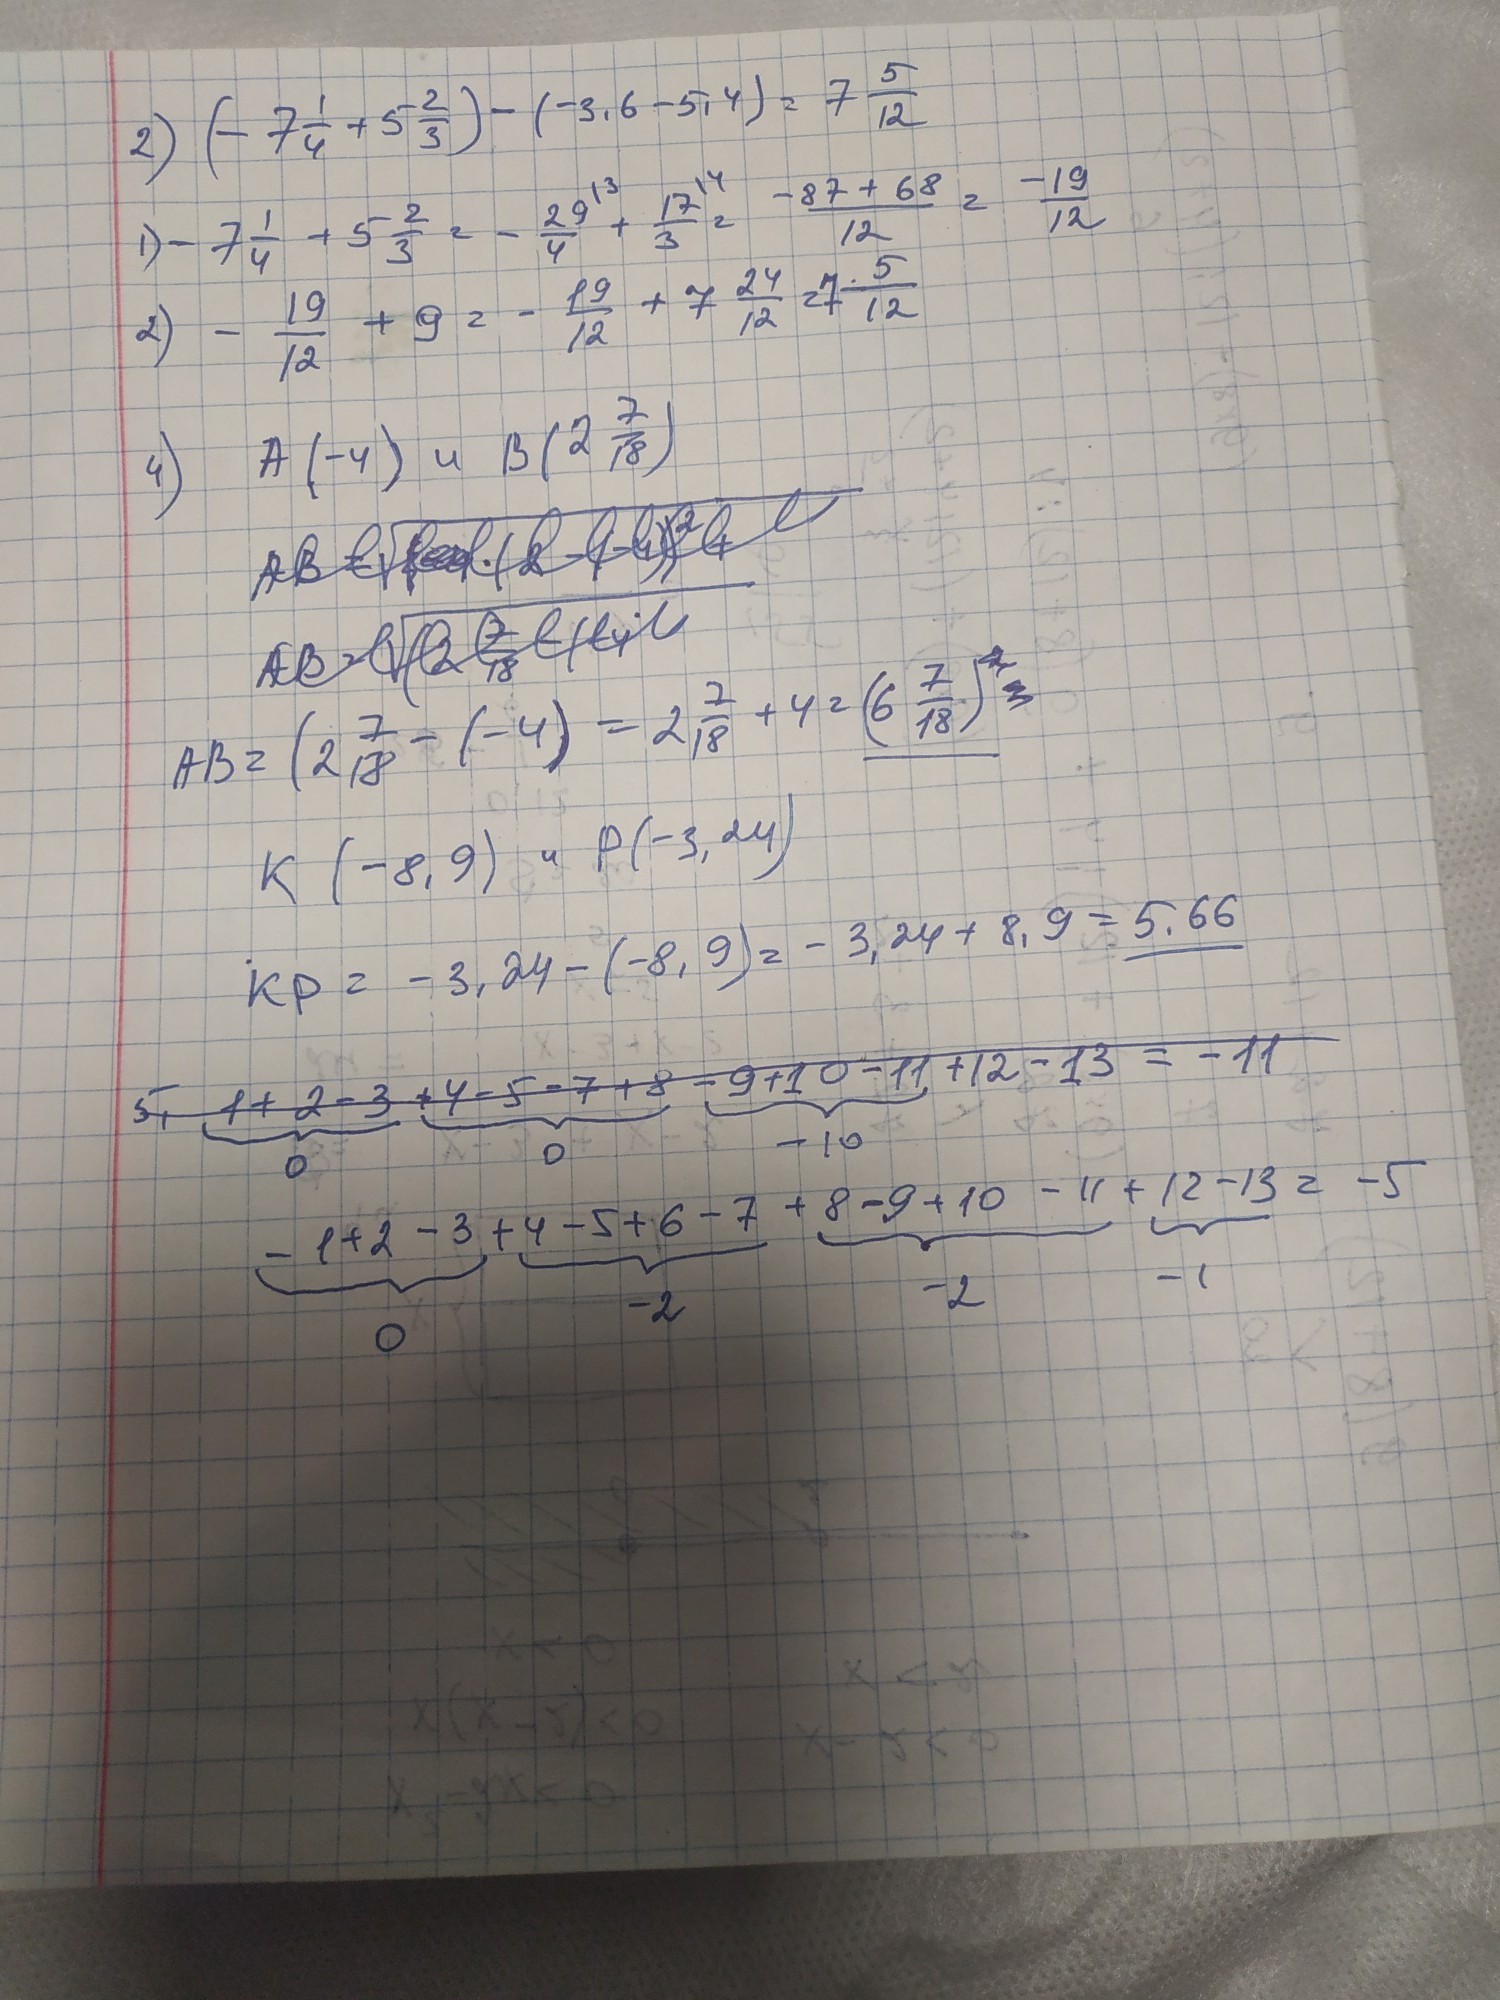 2) (-7 1/4 + 5 2/3) - (-3,6 - 5,4) = 7 5/12
1) - 7 1/4 + 5 2/3 = - 29/4 |3 + 17/3 |4 = -87 + 68/12 = -19/12
2) - 19/12 + 9 = - 19/12 + 7 24/12 = 7 5/12
4) A (-4) и B (2 7/18)
AB = (2 7/18 - (-4) = 2 7/18 + 4 = (6 7/18)
K (-8,9) и P(-3,24)
KP = -3,24 - (-8,9) = -3,24 + 8,9 = 5.66
5, 1+2-3+4-5-7+8-9+10-11+12-13 = -11
0 0 -10
-1+2-3+4-5+6-7+8-9+10-11+12-13 = -5
0 -2 -2 -1